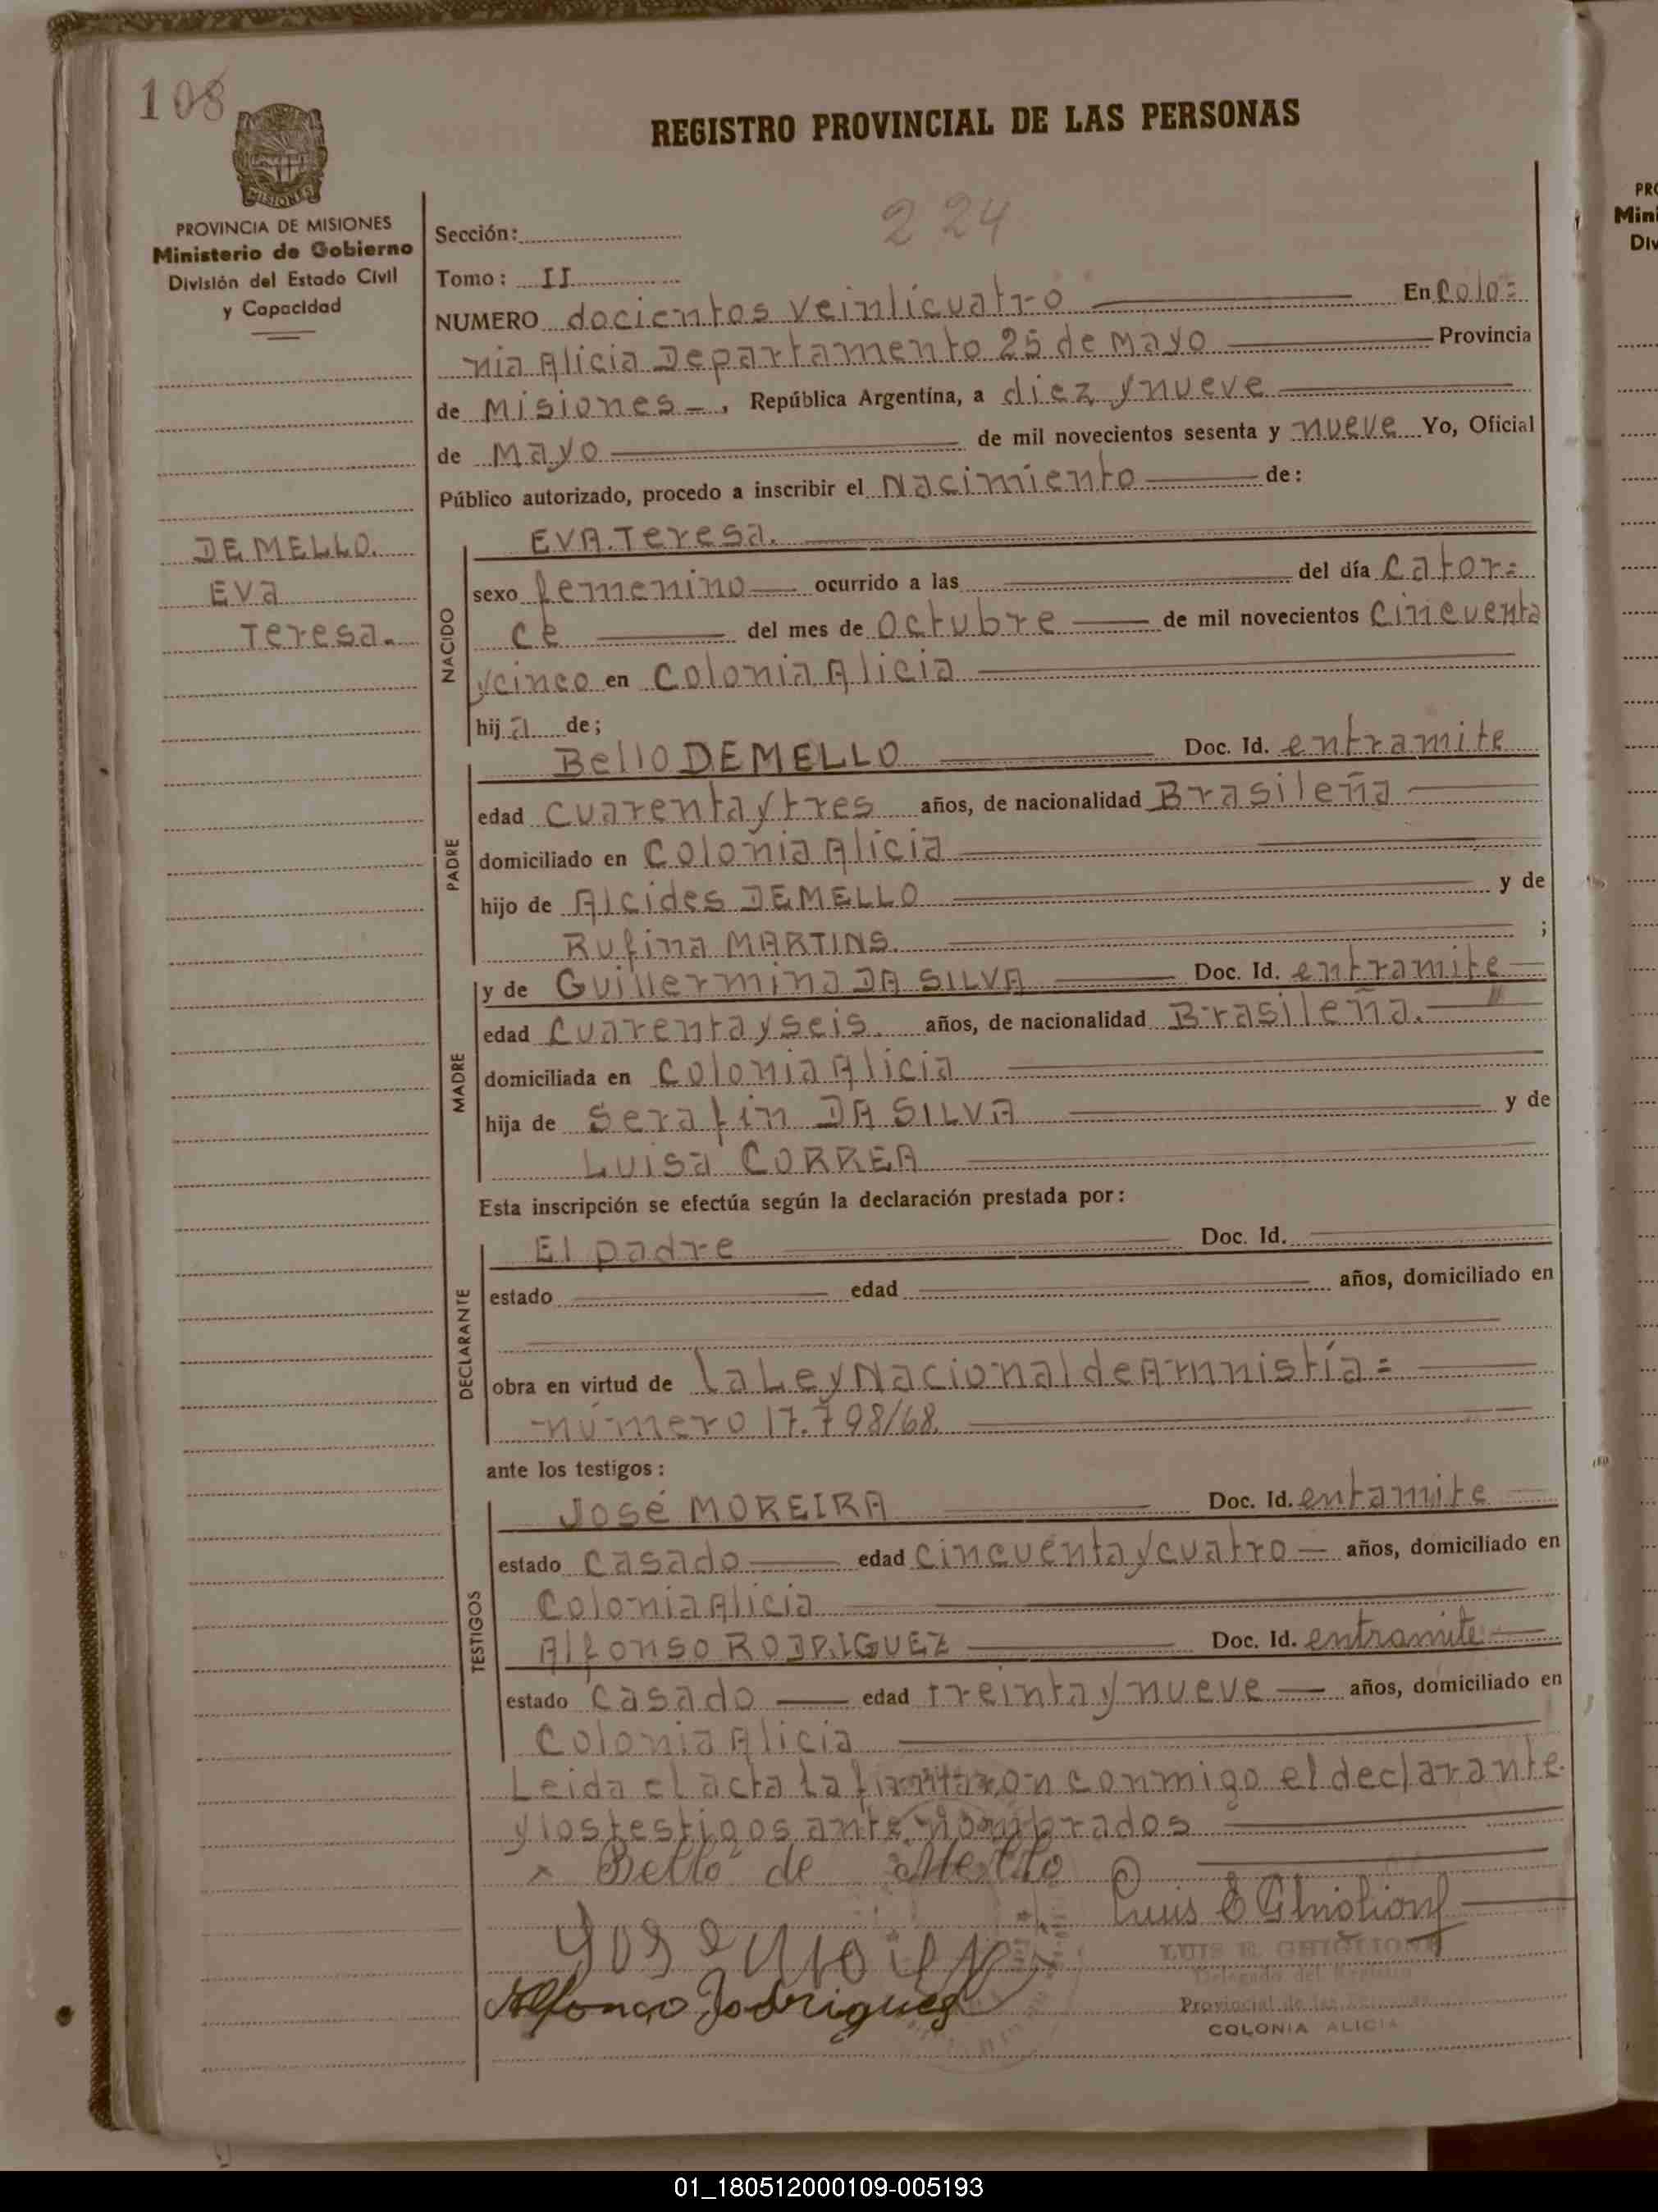 108
REGISTRO PROVINCIAL DE LAS PERSONAS
MISIONES
PROVINCIA DE MISIONES
Ministerio de Gobierno
División del Estado Civil
y Capacidad
DE MELLO.
EVa
Teresa.
224
Sección:
Tomo: II
NUMERO docientos veinticuatro En Colo=
nia Alicia Departamento 25 de Mayo Provincia
de Misiones, República Argentina, a diez y nueve
de Mayo de mil novecientos sesenta y nueve Yo, Oficial
Público autorizado, procedo a inscribir el Nacimiento de:
NACIDO
EVA. Teresa.
sexo femenino ocurrido a las del día Cator=
ce del mes de octubre de mil novecientos Cincuenta
y cinco en Colonia Alicia
hija de;
PADRE
Bello DE MELLO Doc. Id. entramite
edad Cuarenta y tres años, de nacionalidad Brasileña
domiciliado en Colonia Alicia
hijo de Alcides DE MELLO y de
Rufina MARTINS. ;
MADRE
y de Guillermina DA SILVA Doc. Id. entramite
edad Cuarenta y seis. años, de nacionalidad Brasileña.
domiciliada en Colonia Alicia
hija de Serafin DA SILVA y de
Luisa CORREA
Esta inscripción se efectúa según la declaración prestada por:
DECLARANTE
El padre Doc. Id.
estado edad años, domiciliado en
obra en virtud de la Ley Nacional de Amnistía=
número 17.798/68.
ante los testigos:
TESTIGOS
José MOREIRA Doc. Id. entamite
estado Casado edad Cincuenta y cuatro años, domiciliado en
Colonia Alicia
Alfonso RODRIGUEZ Doc. Id. entramite
estado Casado edad treinta y nueve años, domiciliado en
Colonia Alicia
Leida el acta la firmaron conmigo el declarante
y los testigos ante nombrados
x Bello de Mello
Luis E Ghiglione
Jose
Alfonço Rodrigues
LUIS E. GHIGLIONE
Delegado del Registro
Provincial de las Personas
COLONIA ALICIA
PRO
Mini
Div
01_180512000109-005193